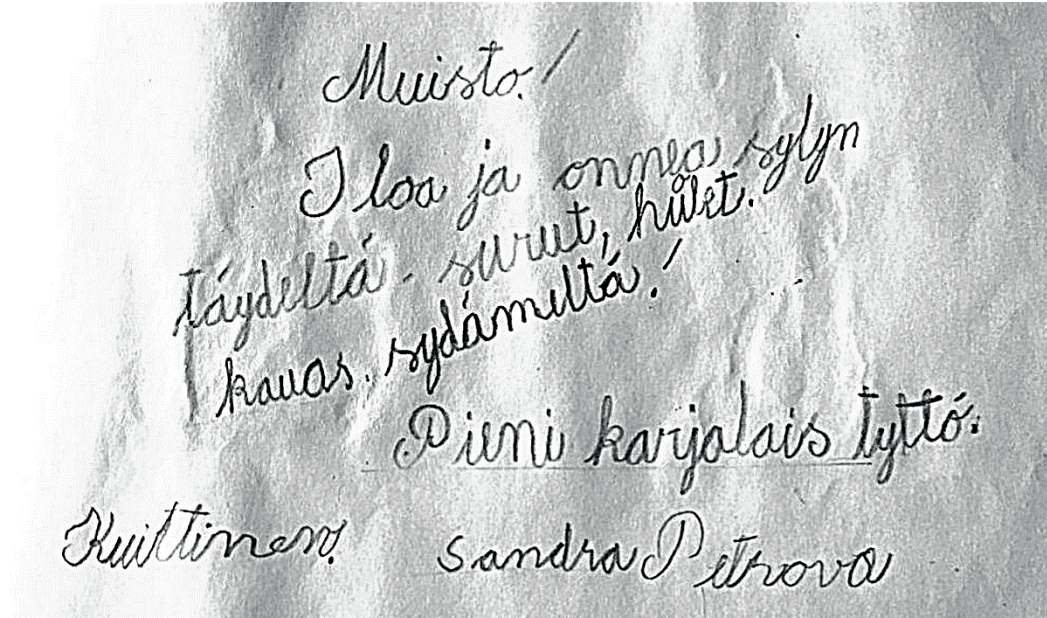 Muisto!
Iloa ja onnea sylyn
täydeltä - surut, huolet.
kauas. sydämeltä!
Pieni karjalais tyttö.
Kuittinen!
Sandra Petrova